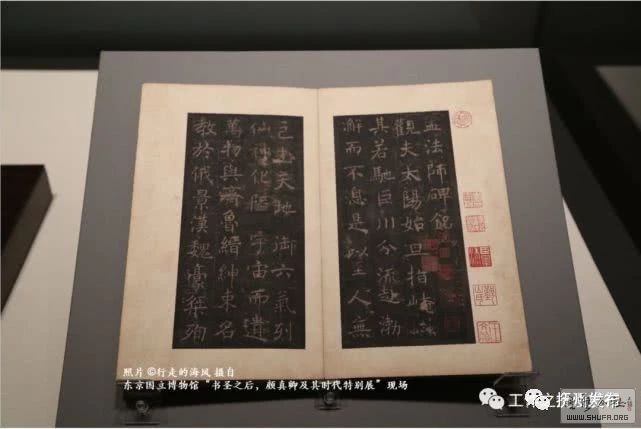 孟法師碑銘
觀夫太陽始旦指崦嵫
其若馳巨川分流趍渤
澥而不息是以至人無
己出天地御六氣列
仙神化隘宇宙而遺
萬物與齊魯縉紳束名
教於俄景漢魏豪桀殉
照片 ©行走的海风 摄自
东京国立博物馆“书圣之后，颜真卿及其时代特别展”现场
抚州发布
WWW.SHUFA.ORG